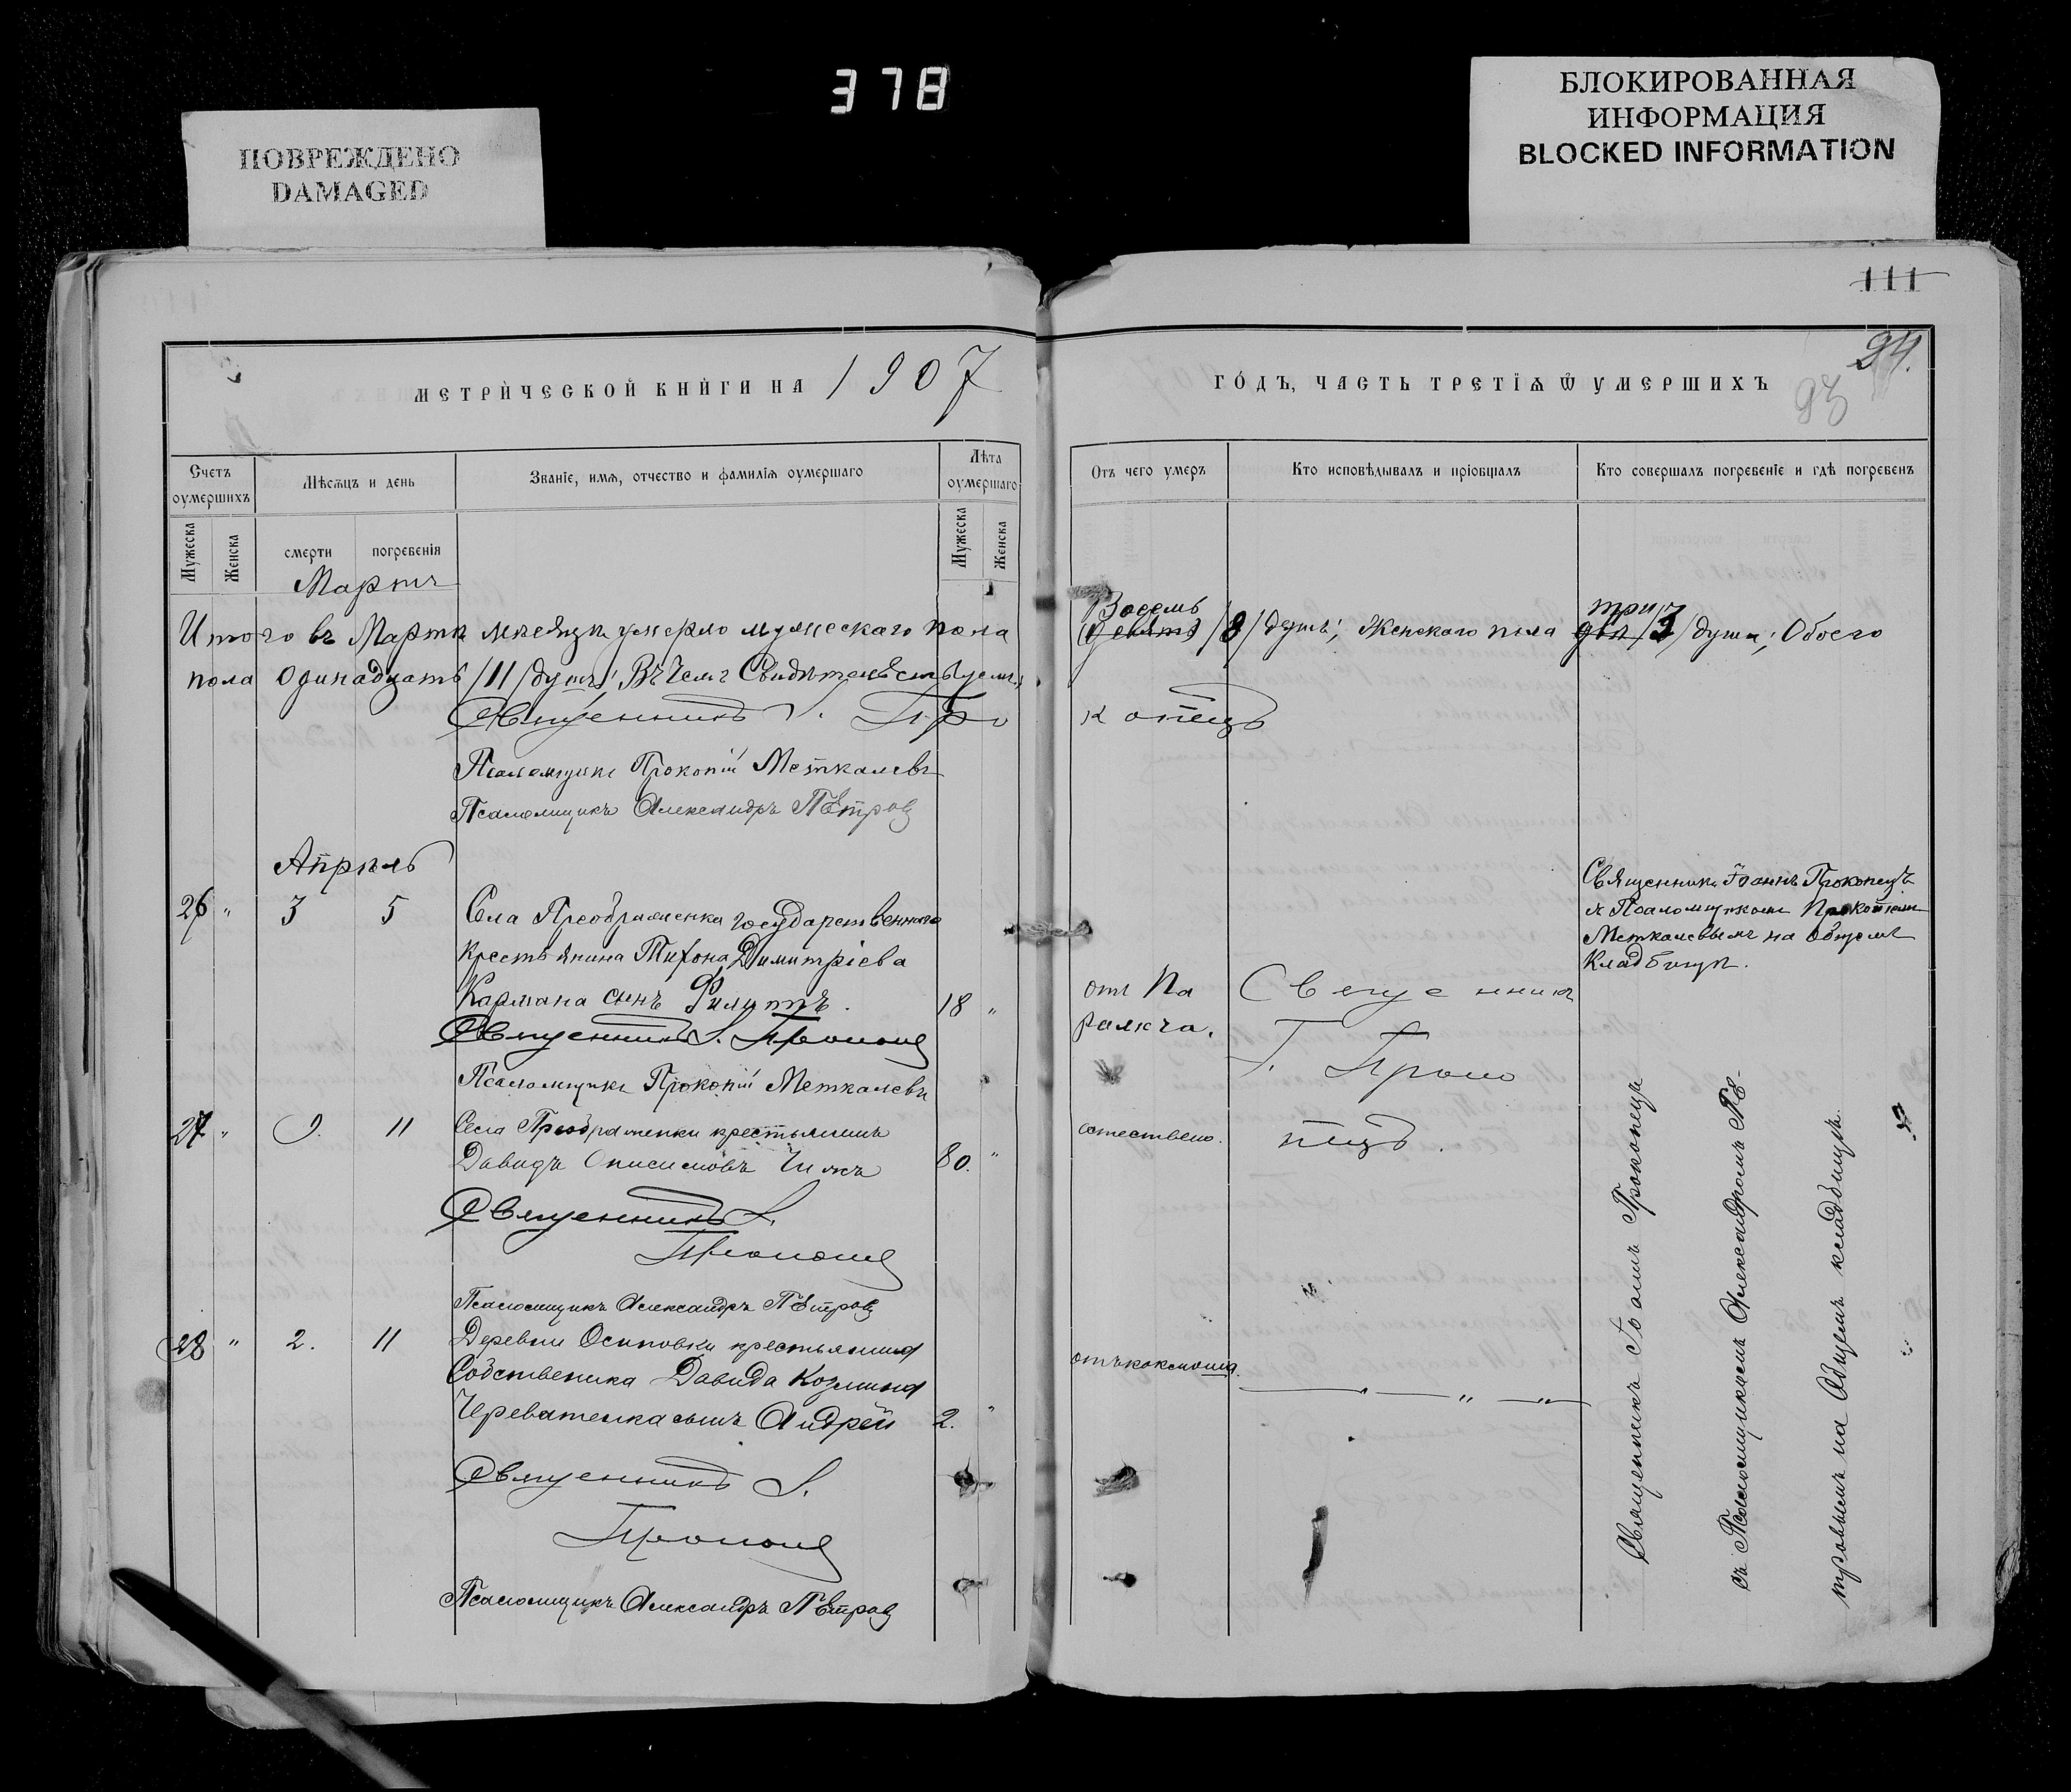 378
ПОВРЕЖДЕНО
DAMAGED
БЛОКИРОВАННАЯ
ИНФОРМАЦИЯ
BLOCKED INFORMATION
111
94.
93
МЕТРИЧЕСКОЙ КНИГИ НА 1907
ГОДЪ, ЧАСТЬ ТРЕТІЯ Ѿ УМЕРШИХЪ
Счетъ оумершихъ
Мѣсяцъ и день
Званіе, имя, отчество и фамилія оумершаго
Лѣта оумершаго
Отъ чего умеръ
Кто исповѣдывалъ и пріобщалъ
Кто совершалъ погребеніе и гдѣ погребенъ
Мужеска
Женска
смерти
погребенія
Мужеска
Женска
Мартъ
Итого въ Мартѣ мѣсяцѣ умерло мужескаго пола
Восемь
девять /8/ душъ; Женскаго пола
три
двѣ /3/ души; Обоего
пола одинадцать /11/ душъ; Въ чемъ Свидѣтельствуемъ:
Священникъ І. Про
копецъ
Псаломщикъ Прокопій Меткалевъ
Псаломщикъ Александръ Пѣтровъ
Апрѣль
26 " 3 5
Села Преображенка государственнаго
крестьянина Тихона Димитріева
Кармана сынъ Филиппъ. 18 "
отъ Па
ралича.
Священникъ
І. Проко
пецъ.
Священникъ Іоаннъ Прокопецъ
съ Псаломщикомъ Прокопіемъ
Меткалевымъ на общемъ
Кладбищѣ.
Священникъ І. Прокопецъ
Псаломщикъ Прокопій Меткалевъ
27 " 9. 11
Села Преображенки крестьянинъ
Давидъ Онисимовъ Чижъ 80. "
естествено.
Священникъ І.
Прокопецъ
Псаломщикъ Александръ Пѣтровъ
28 " 2. 11
Деревни Осиповки крестьянина
Собственика Давида Козмина
Череватенка сынъ Андрей 2. "
отъ коклюша.
" "
Священникъ І.
Прокопецъ
Псаломщикъ Александръ Пѣтровъ
Священникъ Іоаннъ Прокопецъ
съ Псаломщикомъ Александромъ Пѣ-
тровымъ на Общемъ кладбищѣ.